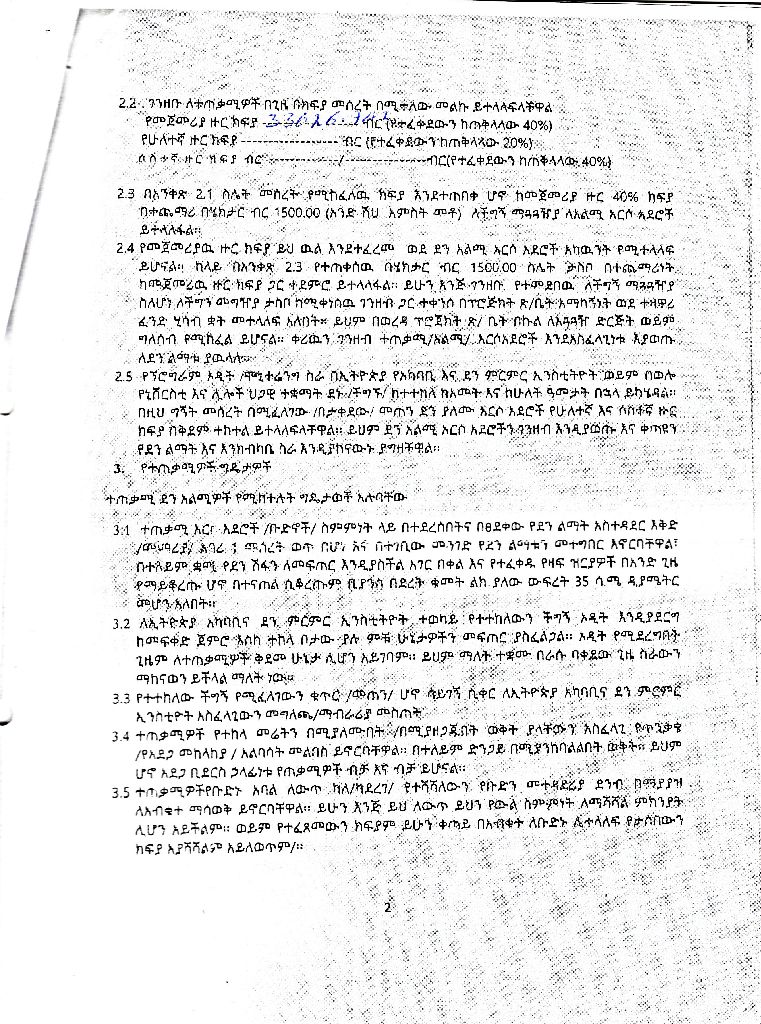 2.2 ገንዘቡ ለተጠቃሚዎች በጊዜ ቡክፍያ መሰረት በሚቀለው መልኩ ይተላለፍላቸዋል
የመጀመሪያ ዙር ክፍያ ብር (የተፈቀደውን ከጠቅላላው 40%)
የሁለተኛ ዙር ክፍያ ------------------- ብር (የተፈቀደውን ከጠቅላላው 20%)
ሶስተኛ ዙር ክፍያ ብር --------------/----------------ብር(የተፈቀደውን ከጠቅላላው 40%)
2.3 በአንቀጽ 2.1 ስሌት መሰረት የሚከፈለዉ ክፍያ እንደተጠበቀ ሆኖ ከመጀመሪያ ዙር 40% ክፍያ
በተጨማሪ በሄክታር ብር 1500.00 (አንድ ሽህ አምስት መቶ) ለችግኝ ማጓጓዣያ ለአልሚ አርሶ አደሮች
ይተላለፋል።
2.4 የመጀመሪያዉ ዙር ክፍያ ይህ ዉል እንደተፈረመ ወደ ደን አልሚ አርሶ አደሮች አካዉንት የሚተላለፍ
ይሆናል። ከላይ በአንቀጽ 2.3 የተጠቀሰዉ በሄክታር ብር 1500.00 ስሌት ታስቦ በተጨማሪነት
ከመጀመሪዉ ዙር ክፍያ ጋር ተደምሮ ይተላለፋል። ይሁን እንጅ ገንዘቡ የተመደበዉ ለችግኝ ማጓጓዣያ
ስለሆነ ለችግኝ መግዣያ ታስቦ ከሚቀነሰዉ ገንዘብ ጋር ተቀንሶ በፕሮጅክት ጽ/ቤት አማካኝነት ወደ ተዛዋሪ
ፈንድ ሂሳብ ቋት መተላለፍ አለበት። ይህም በወረዳ ፕሮጀክት ጽ/ ቤት በኩል ለአጓጓዥ ድርጅት ወይም
ግለሰብ የሚከፈል ይሆናል። ቀሪዉን ገንዘብ ተጠቃሚ/አልሚ/ አርሶአደሮች እንደአስፈላጊነቱ እያወጡ
ለደን ልማቱ ያዉላሉ።
2.5 የፕሮግራም ኦዲት /ሞኒተሬንግ ስራ በኢትዮጵያ የአካባቢ እና ደን ምርምር ኢንስቲትዮት ወይም በወሎ
የኒቨርስቲ እና ሌሎች ህጋዊ ተቋማት ደኑ /ችግኙ/ ከተተከለ ከአመት እና ከሁለት ዓመታት በኋላ ይካሄዳል።
በዚህ ግኝት መሰረት በሚፈለገው /በታቀደው/ መጠን ደን ያለሙ አርሶ አደሮች የሁለተኛ እና ሶስተኛ ዙር
ክፍያ በቅደም ተከተል ይተላለፍላቸዋል። ይህም ደን አልሚ አርሶ አደሮችን ገንዘብ እንዲያወጡ እና ቀጣዩን
የደን ልማት እና እንክብካቤ ስራ እንዲያከናውኑ ያግዘቸዋል።
3. የተጠቃሚዎች ግዴታዎች
ተጠቃሚ ደን አልሚዎች የሚከተሉት ግዴታወች አሉባቸው
3.1 ተጠቃሚ አርሶ አደሮች /ቡድኖች/ ስምምነት ላይ በተደረሰበትና በፀደቀው የደን ልማት አስተዳደር እቅድ
መሰረት ወጥ በሆነ እና በተገቢው መንገድ የደን ልማቱን መተግበር እኖርባቸዋል፣
በተለይም ቋሚ የደን ሽፋን ለመፍጠር እንዲያስችል አገር በቀል እና የተፈቀዱ የዛፍ ዝርያዎች በአንድ ጊዜ
የማይቆረጡ ሆኖ በተናጠል ሲቆረጡም ቢያንስ በደረት ቁመት ልክ ያለው ውፍረት 35 ሴ.ሜ ዲያሜትር
መሆን አለበት።
3.2 ለኢትዮጵያ አካባቢና ደን ምርምር ኢንስቲትዮት ተወካይ የተተከለውን ችግኝ ኦዲት እንዲያደርግ
ከመፍቀድ ጀምሮ እስከ ተከላ ቦታው ያሉ ምቹ ሁኔታዎችን መፍጠር ያስፈልጋል። ኦዲት የሚደረግበት
ጊዜም ለተጠቃሚዎች ቅድመ ሁኔታ ሊሆን አይገባም። ይህም ማለት ተቋሙ በራሱ ባቀደው ጊዜ ስራውን
ማከናወን ይችላል ማለት ነው።
3.3 የተተከለው ችግኝ የሚፈለገውን ቁጥር /መጠን/ ሆኖ ሳይገኝ ሲቀር ለኢትዮጵያ አካባቢና ደን ምርምር
ኢንስቲዮት አስፈላጊውን መግለጫ/ማብራሪያ መስጠት
3.4 ተጠቃሚዎች የተከላ መሬትን በሚያለሙበት /በሚያዘጋጁበት ወቅት ያላቸውን አስፈላጊ የጥንቃቄ
/የአደጋ መከላከያ / አልባሳት መልበስ ይኖርባቸዋል። በተለይም ድንጋይ በሚያንከባልልበት ወቅት። ይህም
ሆኖ አደጋ ቢደርስ ኃላፊነቱ የጠቃሚዎች ብቻ እና ብቻ ይሆናል።
3.5 ተጠቃሚዎችየቡድኑ አባል ለውጥ ካለ/ካደረገ/ የተሻሻለውን የቡድን መተዳደሪያ ደንብ በማያያዝ
ለአብቁተ ማሳወቅ ይኖርባቸዋል። ይሁን እንጅ ይህ ለውጥ ይህን የውል ስምምነት ለማሻሻል ምክንያት
ሊሆን አይችልም። ወይም የተፈጸመውን ክፍያም ይሁን ቀጣይ በአብቁተ ለቡድኑ ሊተላለፍ የታሰበውን
ክፍያ አያሻሽልም አይለወጥም/።
2